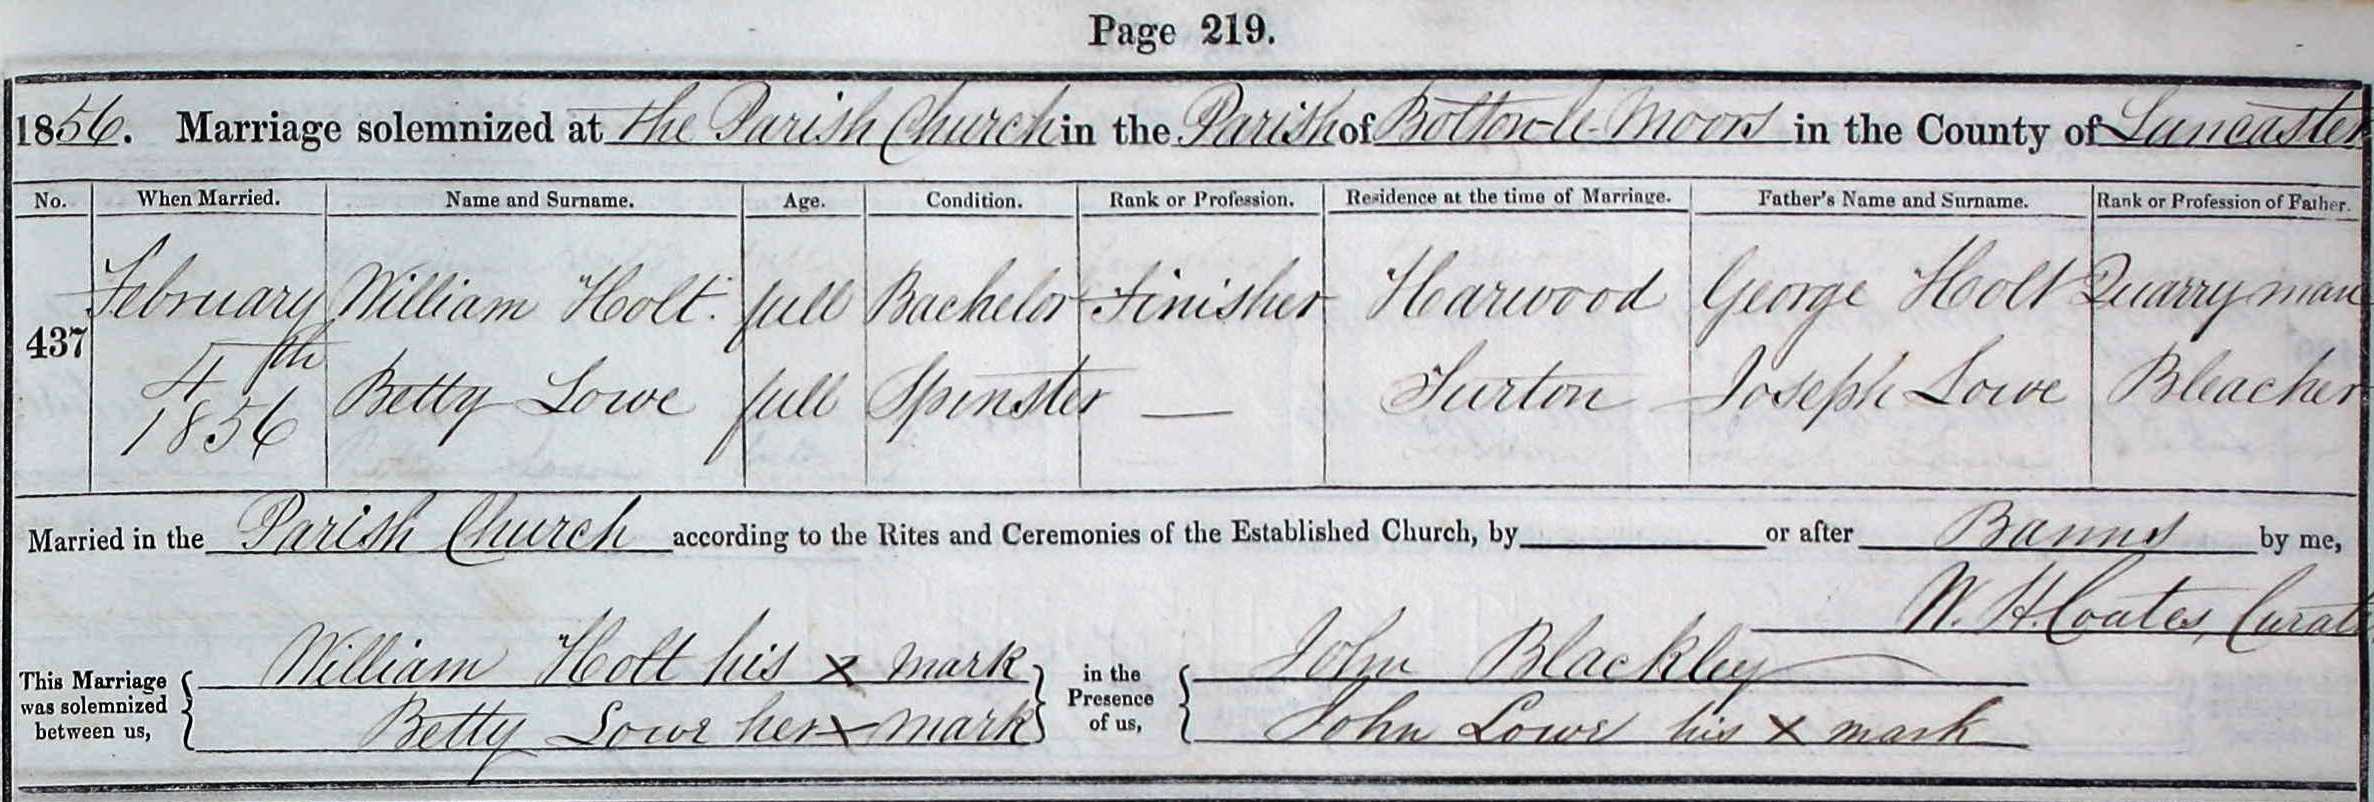 Page 219.
1856. Marriage solemnized at the Parish Church in the Parish of Bolton-le-Moors in the County of Lancaster
No. When Married. Name and Surname. Age. Condition. Rank or Profession. Residence at the time of Marriage. Father's Name and Surname. Rank or Profession of Father.
437 February 4th 1856 William Holt full Bachelor Finisher Harwood George Holt Quarryman
Betty Lowe full Spinster — Turton Joseph Lowe Bleacher
Married in the Parish Church according to the Rites and Ceremonies of the Established Church, by or after Banns by me,
W. H. Coates, Curate
This Marriage was solemnized between us, William Holt his x mark in the Presence of us, John Blackley
Betty Lowe her x mark John Lowe his x mark